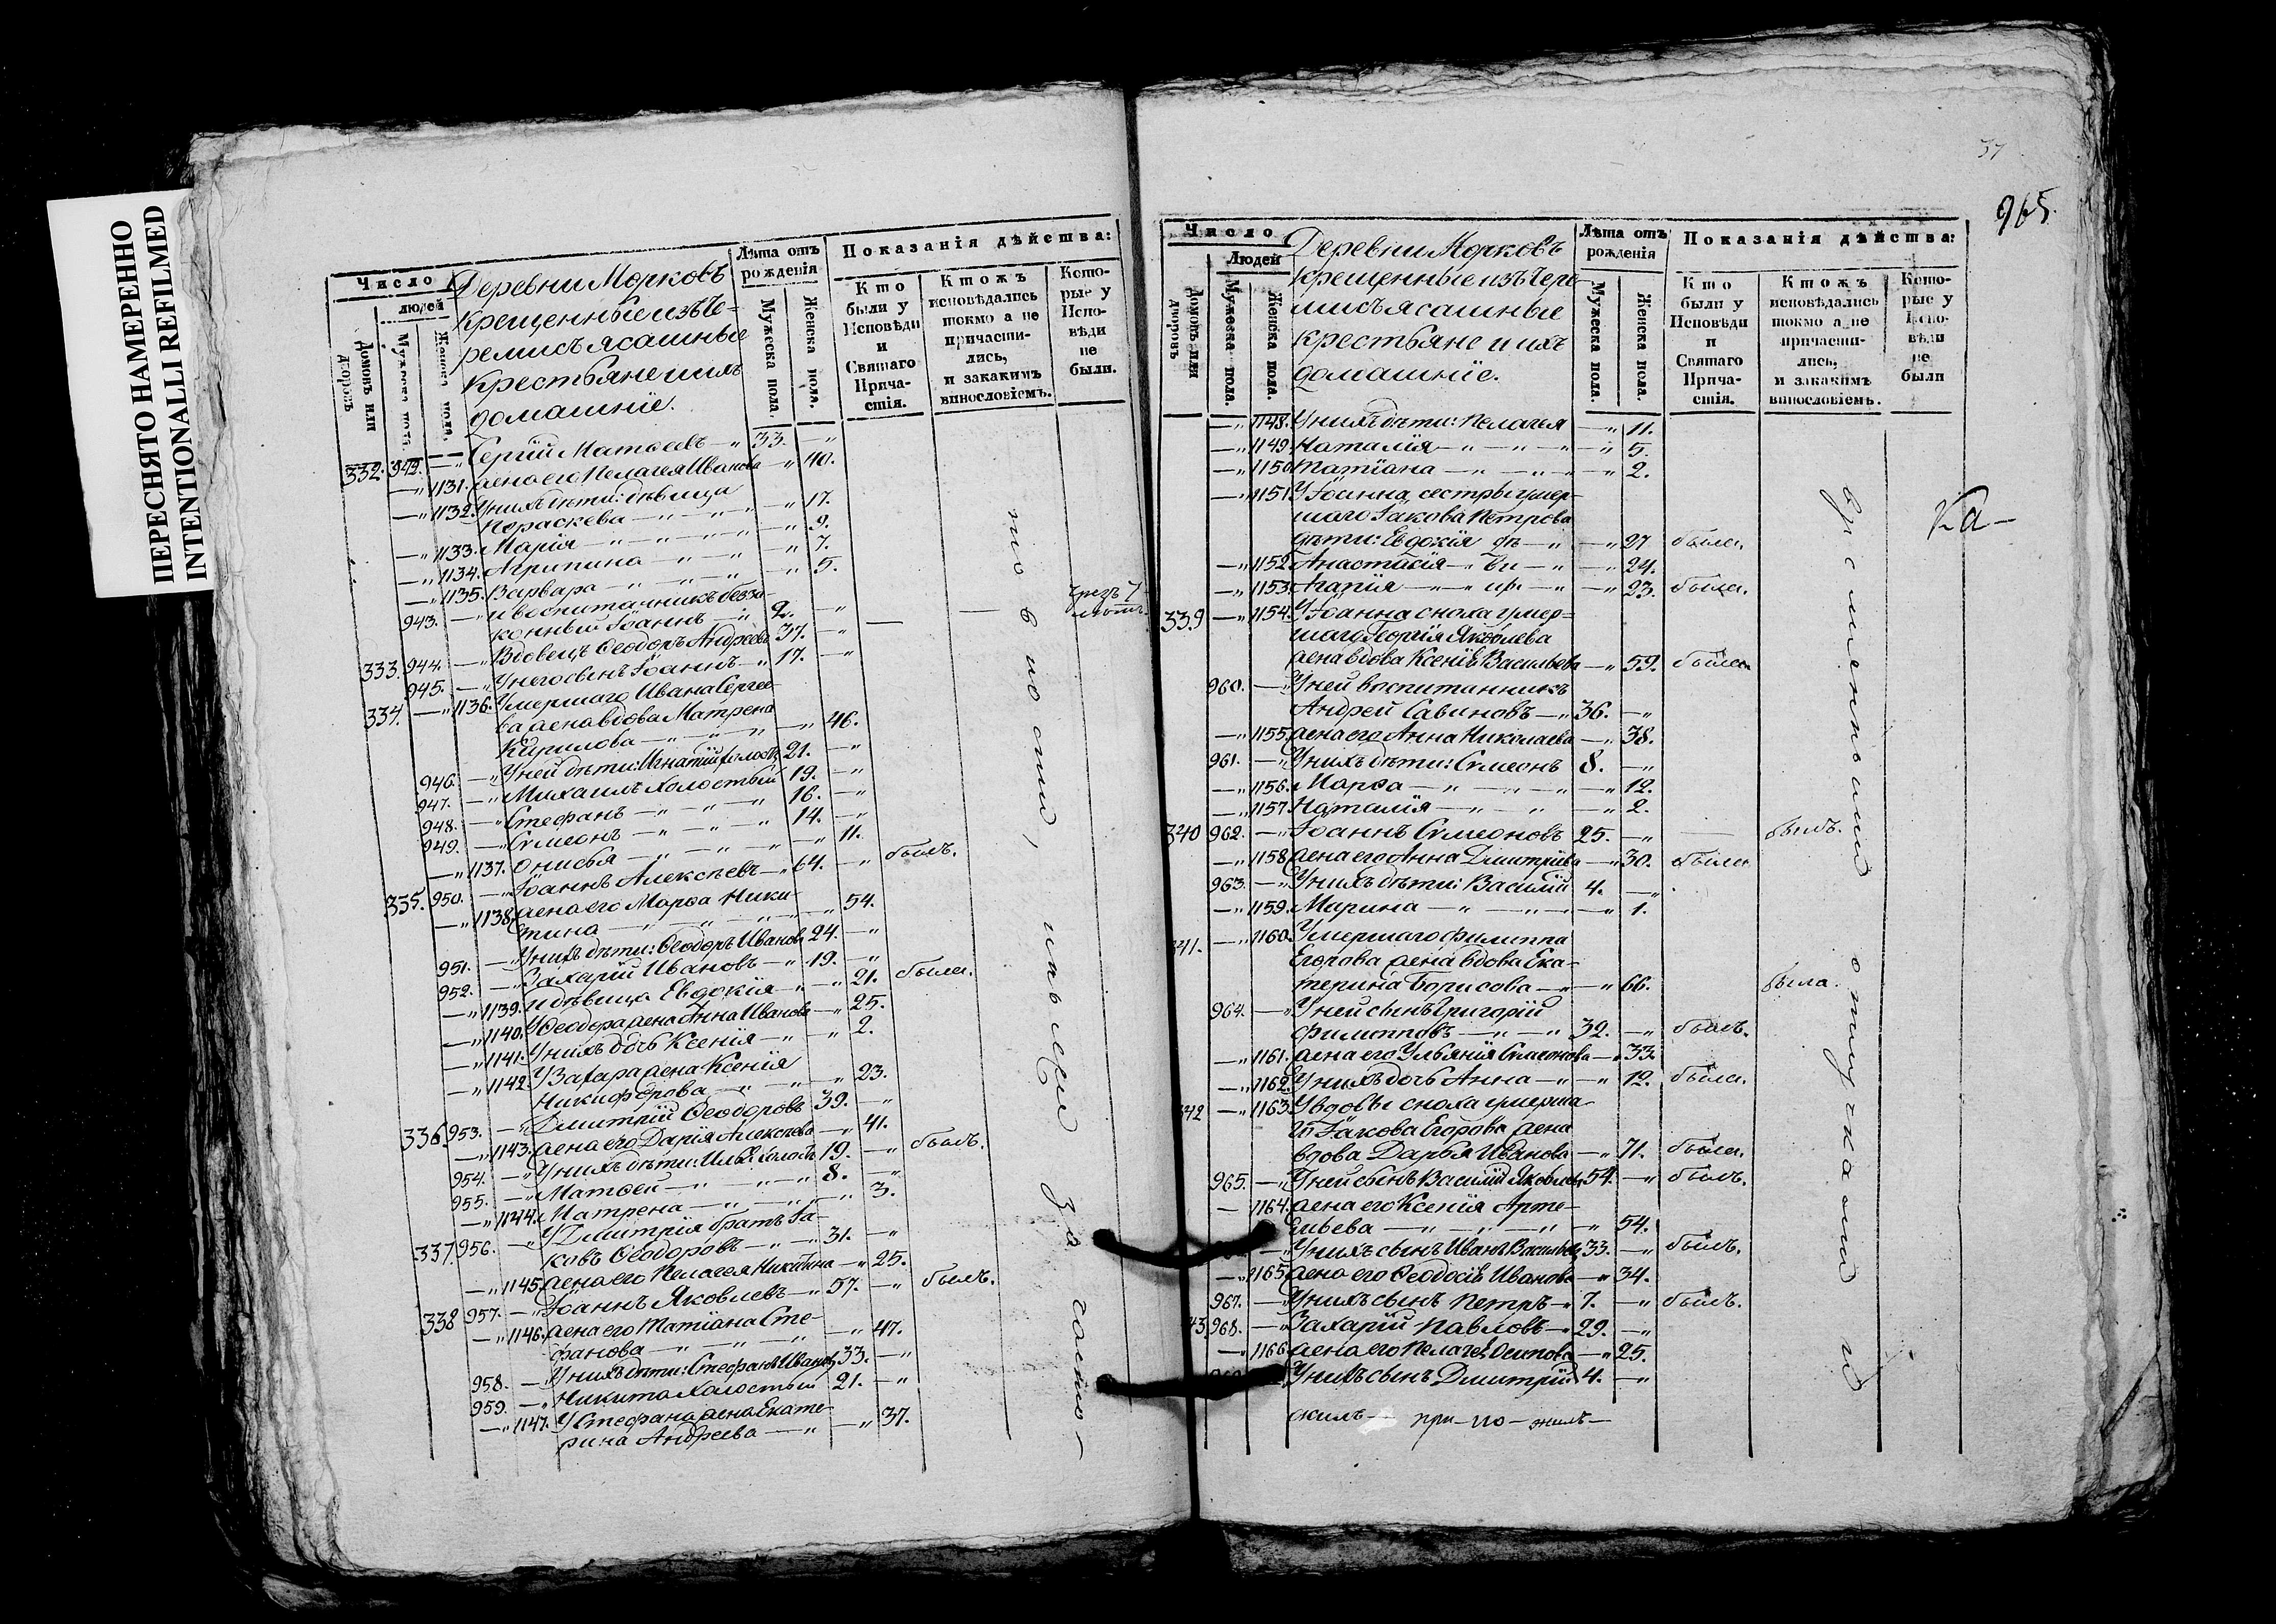 ПЕРЕСНЯТО НАМЕРЕННО
INTENTIONALLI REFILMED
Число
людей
Домовъ или дворовъ
Мужеска пола.
Женска пола.
Деревни Морковъ
Крещенные изъ Че-
ремисъ ясашные
Крестьяне и ихъ
домашніе.
Лѣта отъ рожденія
Мужеска пола.
Женска пола.
Показанія дѣйства:
Кто были у Исповѣди и Святаго Причастія.
Ктожъ исповѣдались токмо а не причастились, и закакимъ винословіемъ.
Которые у Исповѣди не были.
332. 942. —„ Сергій Матѳеевъ —„ 33. —„
—„ 1131. жена его Пелагея Иванова —„ 40.
—„ 1132. У нихъ дѣти: дѣвица
Пораскева —„ —„ —„ 17.
—„ 1133. Марія —„ —„ —„ 9.
—„ 1134. Агрипина —„ —„ 7.
—„ 1135. Варвара —„ —„ —„ 5.
943. —„ и воспитанникъ безза-
конный Іоаннъ —„ 2. —„
333. 944. —„ Вдовецъ Ѳеодоръ Андреевъ 37. —„
945. —„ У него сынъ Іоаннъ —„ 17. —„
334. —„ 1136. Умершаго Ивана Сергее-
ва жена вдова Матрена
Кирилова —„ —„ —„ 46.
946. —„ У ней дѣти: Игнатій холостъ 21. —„
947. —„ Михаилъ холостый 19. —„
948. —„ Стефанъ —„ —„ —„ 16. —„
949. —„ Сѵмеонъ —„ —„ —„ 14. —„
—„ 1137. Онисья —„ —„ —„ 11.
335. 950. —„ Іоаннъ Алексѣевъ —„ 64. —„ былъ.
—„ 1138. жена его Марѳа Ники-
тина —„ —„ —„ 54.
951. —„ У нихъ дѣти: Ѳеодоръ Ивановъ 24. —„
952. —„ Захарій Ивановъ —„ 19. —„
—„ 1139. и дѣвица Евдокія —„ —„ 21. была.
—„ 1140. У Ѳеодора жена Анна Иванова —„ 25.
—„ 1141. У нихъ дочь Ксенія —„ —„ 2.
—„ 1142. У Захара жена Ксенія
Никифорова —„ —„ —„ 23.
336. 953. —„ Димитрій Ѳеодоровъ 39. —„
—„ 1143. жена его Дарія Алексѣева —„ 41.
954. —„ У нихъ дѣти: Илья холостъ 19. —„ былъ.
955. —„ Матѳей —„ —„ —„ 8. —„
—„ 1144. Матрена —„ —„ —„ 3.
337. 956. —„ У Димитрія братъ Іа-
ковъ Ѳеодоровъ —„ —„ 31. —„
—„ 1145. жена его Пелагея Никитина —„ 25.
338. 957. —„ Іоаннъ Яковлевъ —„ 57. —„ былъ.
—„ 1146. жена его Татіана Сте-
фанова —„ —„ —„ 47.
958. —„ У нихъ дѣти: Стефанъ Ивановъ 33. —„
959. —„ Никита холостый 21. —„
—„ 1147. У Стефана жена Екате-
рина Андреева —„ —„ 37.
чрезъ 7
лѣтъ
37
965.
Число
Людей
Домовъ или дворовъ
Мужеска пола.
Женска пола.
Деревни Морковъ
Крещенные изъ Чере-
мисъ ясашные
крестьяне и ихъ
домашніе.
Лѣта отъ рожденія
Мужеска пола.
Женска пола.
Показанія дѣйства:
Кто были у Исповѣди и Святаго Причастія.
Ктожъ исповѣдались токмо а не причастились, и закакимъ винословіемъ.
Которые у Исповѣди не были
—„ 1148. У нихъ дѣти: Пелагея —„ 11.
—„ 1149. Наталія —„ —„ —„ 5.
—„ 1150. Татіана —„ —„ —„ 2.
—„ 1151. У Іоанна сестры умер-
шаго Іакова Петрова
дѣти: Евдокія дѣ —„ —„ 27 была.
—„ 1152. Анастасія —„ —„ 24.
—„ 1153. Агапія —„ —„ —„ 23. была.
339 —„ 1154. У Іоанна сноха умер-
шаго Георгія Яковлева
жена вдова Ксенія Васильева —„ 59. была
960. —„ У ней воспитанникъ
Андрей Савиновъ —„ 36. —„
—„ 1155. жена его Анна Николаева —„ 38.
961. —„ У нихъ дѣти: Сѵмеонъ 8. —„
—„ 1156. Марѳа —„ —„ —„ 12.
—„ 1157. Наталія —„ —„ —„ 2.
340 962. —„ Іоаннъ Сѵмеоновъ 25. —„ — былъ.
—„ 1158. жена его Анна Димитріева —„ 30. была
963. —„ У нихъ дѣти: Василій 4. —„
—„ 1159. Марина —„ —„ —„ 1.
341. —„ 1160. Умершаго Филиппа
Егорова жена вдова Ека-
терина Борисова —„ —„ 66. была.
964. —„ У ней сынъ Григорій
Филипповъ —„ —„ 32. —„ былъ.
—„ 1161. жена его Ульянія Сѵмеонова —„ 33.
—„ 1162. У нихъ дочь Анна —„ —„ 12. была.
342 —„ 1163. У вдовы сноха умерша-
го Іакова Егорова жена
вдова Дарья Иванова —„ 71. была.
965. —„ У ней сынъ Василій Яковлевъ 54. —„ былъ.
— 1164. жена его Ксенія Арте-
мьева —„ —„ —„ 54.
—„ У нихъ сынъ Иванъ Васильевъ 33. —„ былъ.
—„ 1165. жена его Ѳеодосія Иванова —„ 34.
967. —„ У нихъ сынъ Петръ —„ 7. —„ былъ.
43. 968. —„ Захарій Павловъ —„ 29. —„
—„ 1166. жена его Пелагея Осипова —„ 25.
У нихъ сынъ Димитрій 4. —„
при— по— жилъ—
Ка—